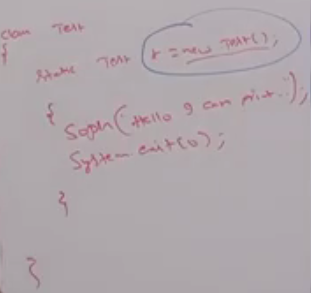 class Test
{
static Test t = new Test();
{
Sopln("Hello I can print..");
System.exit(0);
}
}